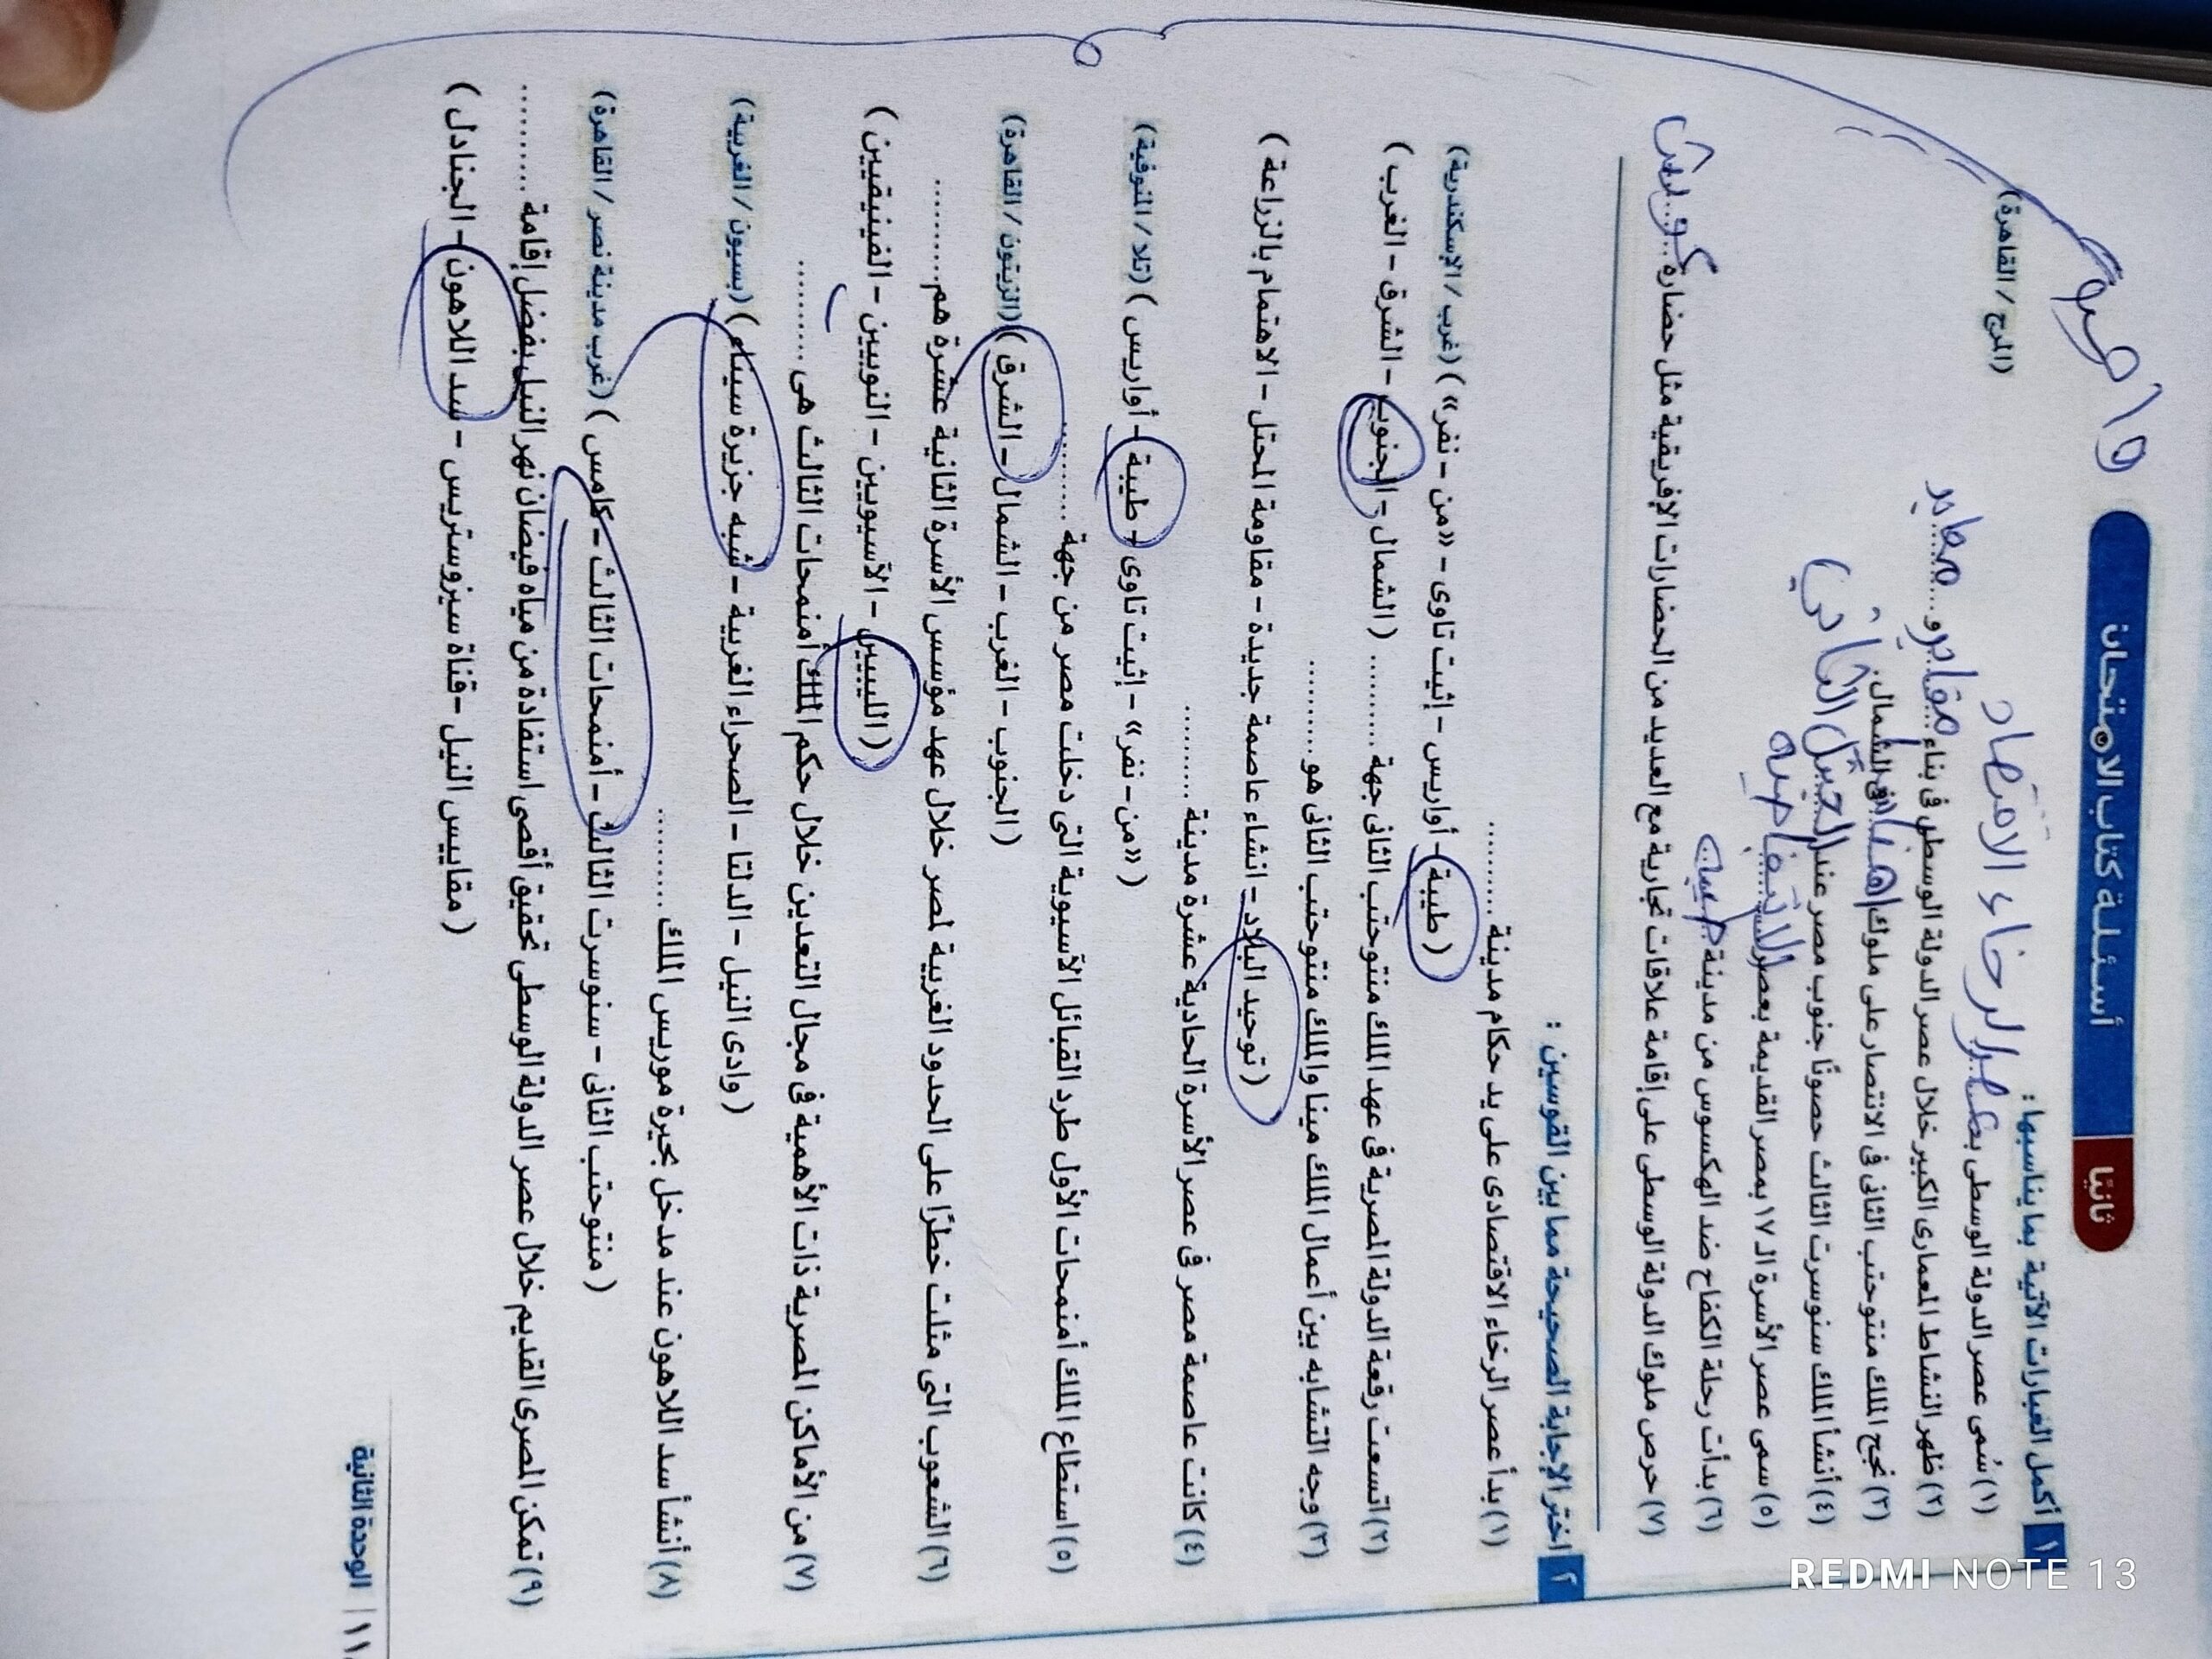 ١٥ صـ
ثانيًا أسئلة كتاب الامتحان
١ أكمل العبارات الآتية بما يناسبها :
(١) سُمى عصر الدولة الوسطى بـ عصر الرخاء الاقتصاد (المرج / القاهرة)
(٢) ظهر النشاط المعمارى الكبير خلال عصر الدولة الوسطى فى بناء مقابر و معابد
(٣) نجح الملك منتوحتب الثانى فى الانتصار على ملوك فى الشمال.
(٤) أنشأ الملك سنوسرت الثالث حصونًا جنوب مصر عند
(٥) سمى عصر الأسرة الـ ١٧ بمصر القديمة بعصر
(٦) بدأت رحلة الكفاح ضد الهكسوس من مدينة طيبة
(٧) حرص ملوك الدولة الوسطى على إقامة علاقات تجارية مع العديد من الحضارات الإفريقية مثل حضارة كوش
٢ اختر الإجابة الصحيحة مما بين القوسين :
(١) بدأ عصر الرخاء الاقتصادى على يد حكام مدينة ..........
( طيبة - أواريس - إثيت تاوى - «من - نفر» ) (غرب / الإسكندرية)
(٢) اتسعت رقعة الدولة المصرية فى عهد الملك منتوحتب الثانى جهة .......... ( الشمال - الجنوب - الشرق - الغرب )
(٣) وجه التشابه بين أعمال الملك مينا والملك منتوحتب الثانى هو ..........
( توحيد البلاد - انشاء عاصمة جديدة - مقاومة المحتل - الاهتمام بالزراعة )
(٤) كانت عاصمة مصر فى عصر الأسرة الحادية عشرة مدينة ..........
( «من - نفر» - إثيت تاوى - طيبة - أواريس ) (تلا / المنوفية)
(٥) استطاع الملك أمنمحات الأول طرد القبائل الآسيوية التى دخلت مصر من جهة ..........
( الجنوب - الغرب - الشمال - الشرق ) (الزيتون / القاهرة)
(٦) الشعوب التى مثلت خطرًا على الحدود الغربية لمصر خلال عهد مؤسس الأسرة الثانية عشرة هم ..........
( الليبيين - الآسيويين - النوبيين - الفينيقيين )
(٧) من الأماكن المصرية ذات الأهمية فى مجال التعدين خلال حكم الملك أمنمحات الثالث هى ..........
( وادى النيل - الدلتا - الصحراء الغربية - شبه جزيرة سيناء ) (بسيون / الغربية)
(٨) أنشأ سد اللاهون عند مدخل بحيرة موريس الملك ..........
( منتوحتب الثانى - سنوسرت الثالث - أمنمحات الثالث - كامس ) (غرب مدينة نصر / القاهرة)
(٩) تمكن المصرى القديم خلال عصر الدولة الوسطى تحقيق أقصى استفادة من مياه فيضان نهر النيل بفضل إقامة ..........
( مقاييس النيل - قناة سيزوستريس - سد اللاهون - الجنادل )
الوحدة الثانية
REDMI NOTE 13